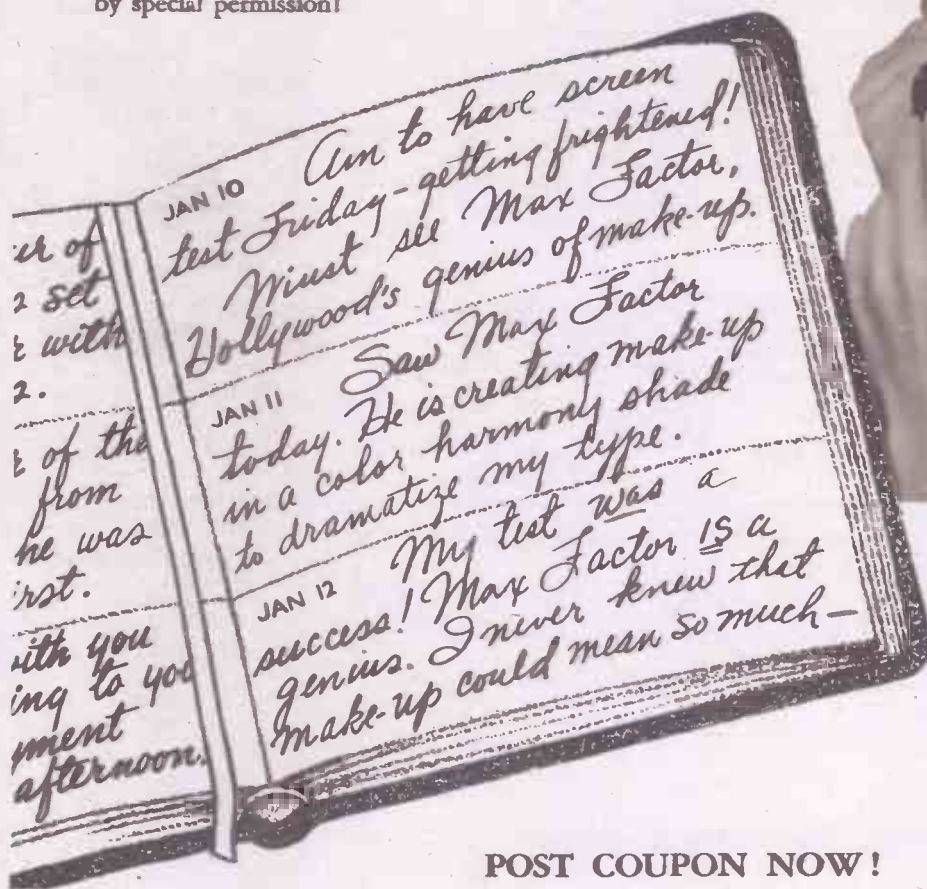 by special permission!
er of
set
with
2.
of the
from
he was
rst.
with you
ing to you
ment
afternoon.
JAN 10 Am to have screen
test Friday - getting frightened!
Must see Max Factor,
Hollywood's genius of make-up.
JAN 11 Saw Max Factor
today. He is creating make-up
in a color harmony shade
to dramatize my type.
JAN 12 My test was a
success! Max Factor IS a
genius. I never knew that
make-up could mean so much—
POST COUPON NOW!